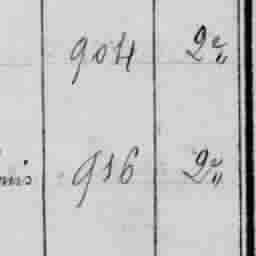 904 2e„
916 2e„